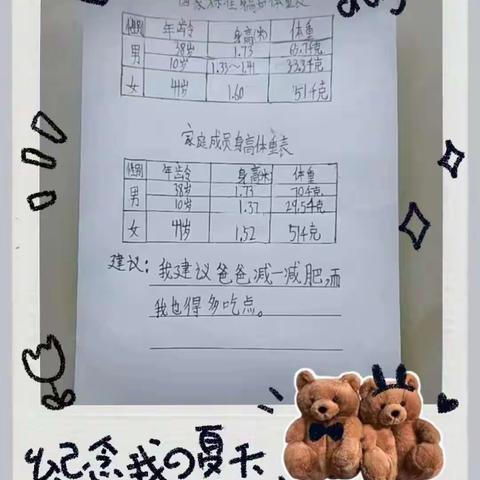 国家标准身高和体重表
性别 年龄 身高(米) 体重
男 38岁 1.73 65.7千克
10岁 1.33～1.41 33.3千克
女 41岁 1.60 51千克
家庭成员身高体重表
性别 年龄 身高(米) 体重
男 38岁 1.73 70千克
10岁 1.37 29.5千克
女 41岁 1.52 51千克
建议：我建议爸爸减一减肥,而
我也得多吃点。
纪念我の夏天